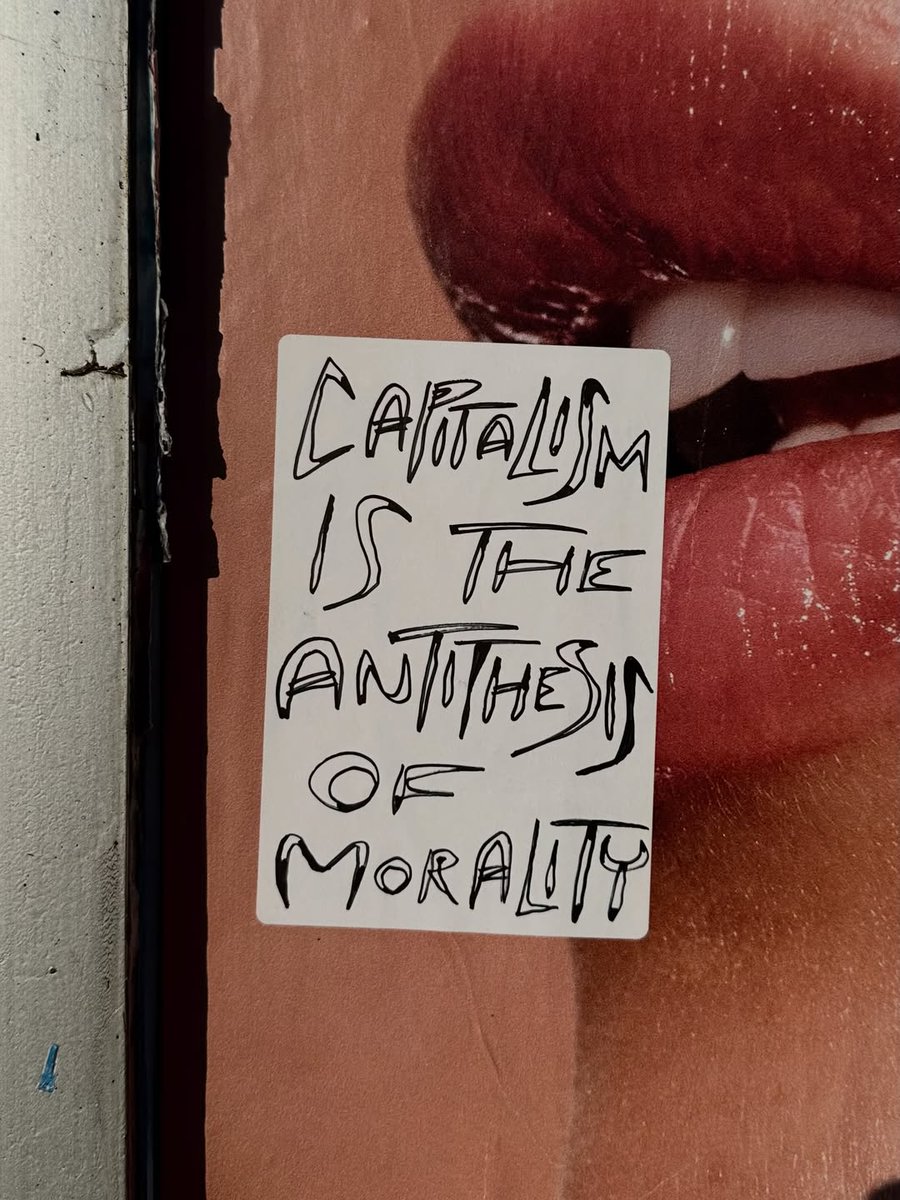 CAPITALISM
IS THE
ANTITHESIS
OF
MORALITY